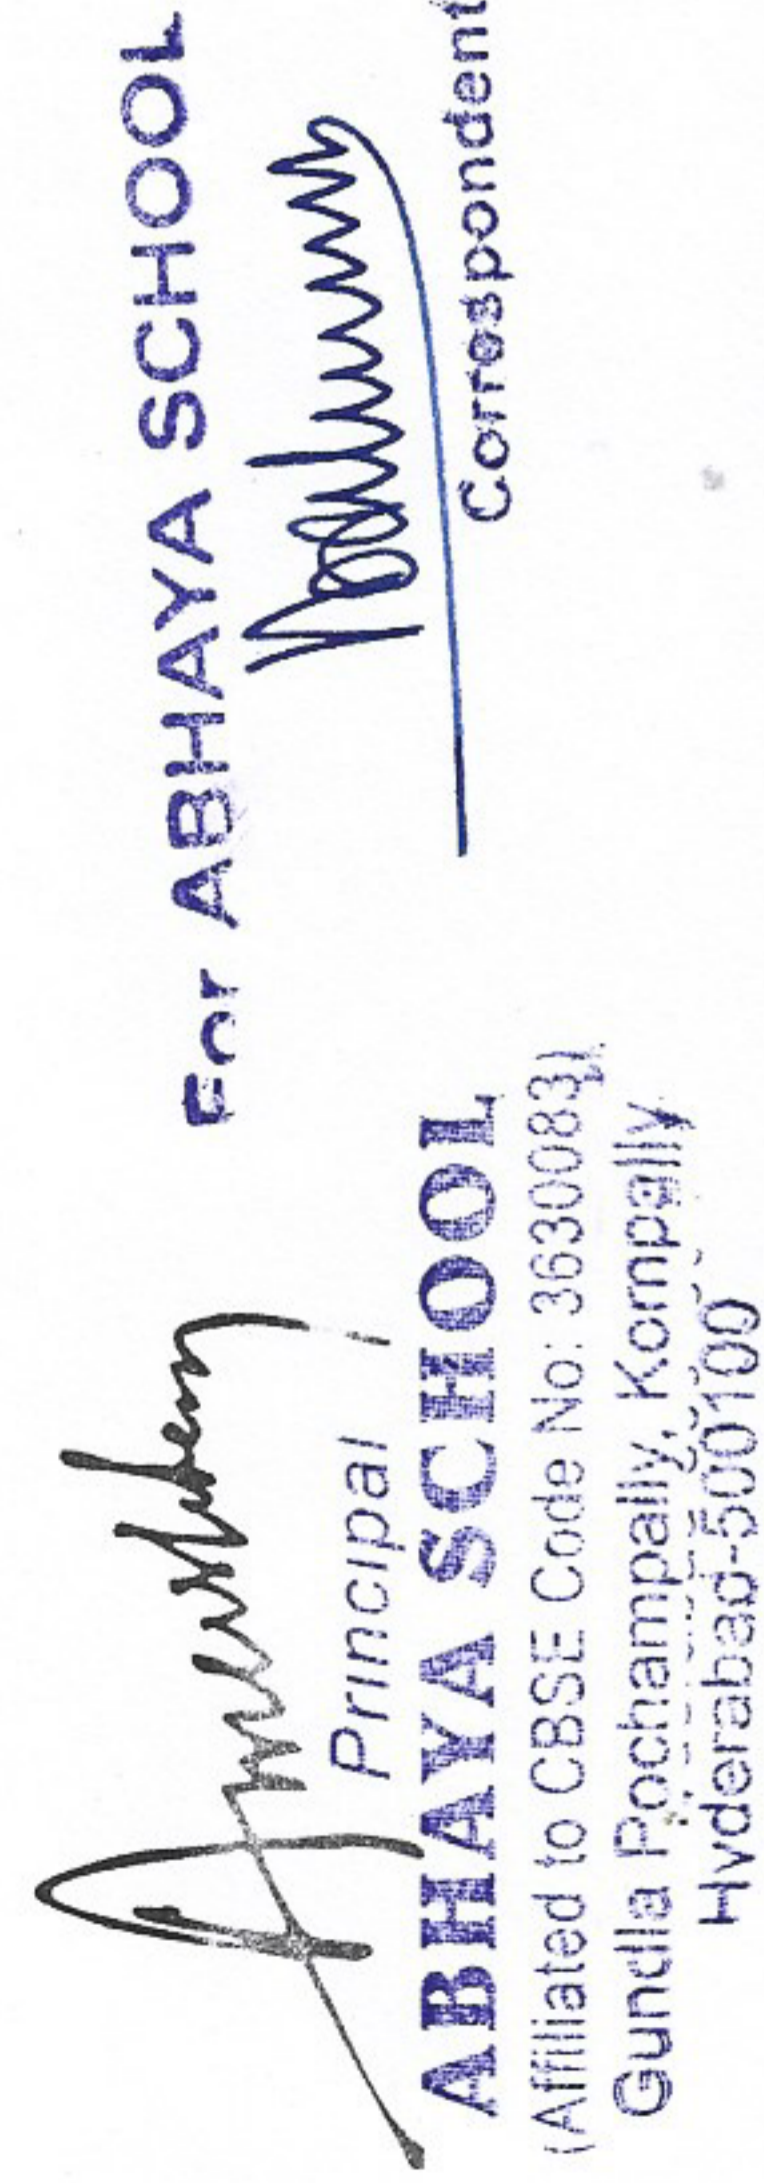 Principal
ABHAYA SCHOOL
(Affiliated to CBSE Code No: 3630083)
Gundla Pochampally, Kompally,
Hyderabad-500100
For ABHAYA SCHOOL
Correspondent